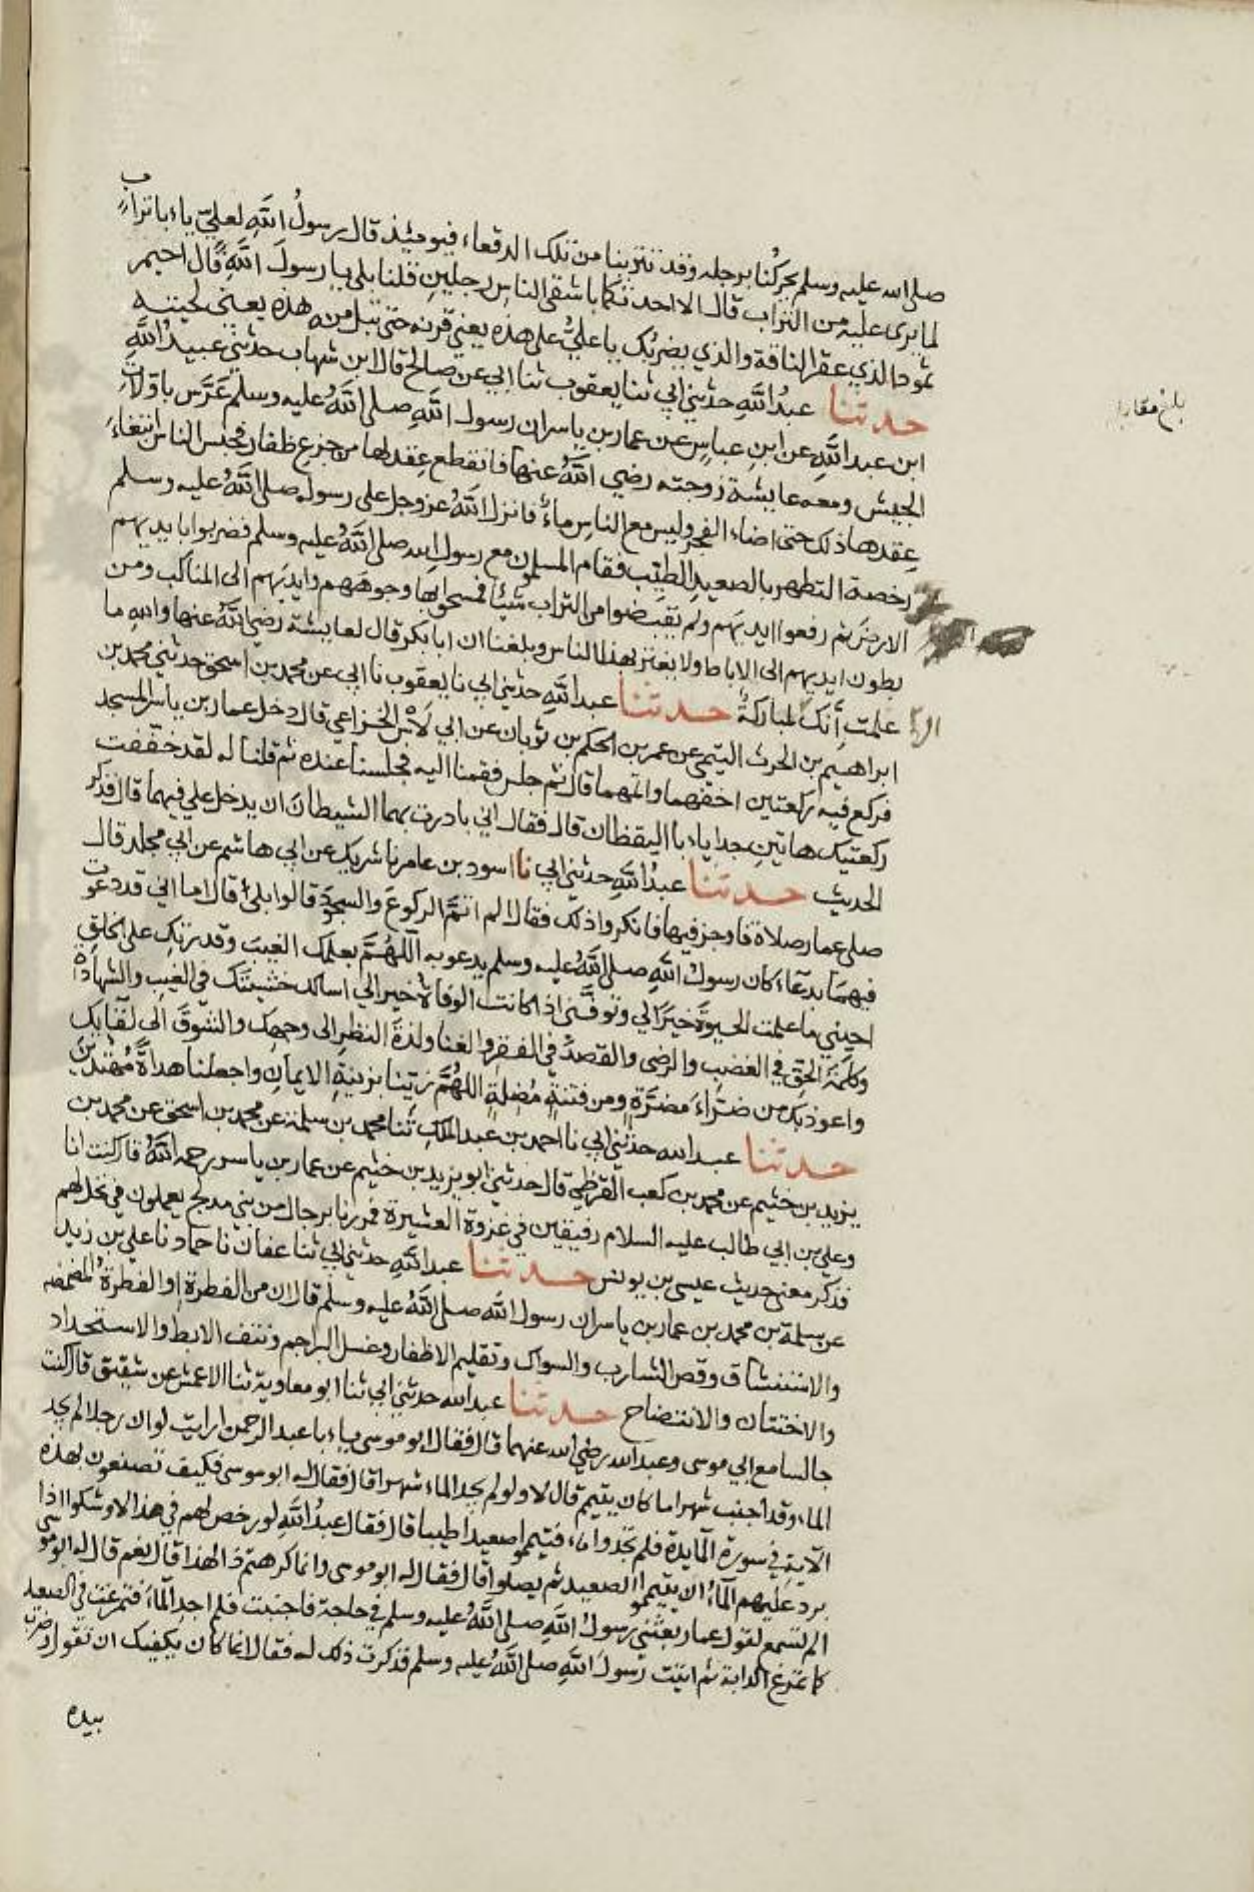 صلى الله عليه وسلم يحركنا برجله وقد تتربنا من تلك الدقعاء فيومئذ قال رسولُ اللهِ لعليّ ياءبا تراب
لما يرى عليه من التراب قال الا احدثكما باشقى الناس رجلينِ قلنا بلى يا رسولَ اللهِ قال احيمر
ثمود الذي عقر الناقة والذي يضربك يا عليُّ على هذه يعني قرنه حتى تبل منه هذه يعني لحيته
حدثنا عبدُ اللهِ حدثني ابي ثنا يعقوب ثنا ابي عن صالح قال ابن شهاب حدثني عبيدُ اللهِ
ابن عبد اللهِ عن ابنِ عباسٍ عن عمار بن ياسر ان رسول اللهِ صلى اللهُ عليه وسلم عَرَّس باوّلاتِ
الجيش ومعه عايشة زوجته رضي اللهُ عنها فانقطع عِقد لها من جزع ظفار فحبس الناس ابتغاءَ
عِقدها ذلك حتى اضاء الفجر وليس مع الناسِ ماءٌ فانزل اللهُ عز وجل على رسوله صلى اللهُ عليه وسلم
رخصة التطهر بالصعيدِ الطيّب فقام المسلمون مع رسول الله صلى اللهُ عليه وسلم فضربوا بايديهم
الارضَ ثم رفعوا ايديَهم ولم يقبضوا من التراب شيئا فمسحوا بها وجوهَهم وايديَهم الى المناكب ومن
بطون ايديهم الى الاباط ولا يغتر بهذا الناس وبلغنا ان ابا بكر قال لعايشة رضي اللهُ عنها واللهِ ما
علمت أنك لمباركةٌ حدثنا عبد اللهِ حدثني ابي نا يعقوب نا ابي عن محمد بن اسحق حدثني محمد بن
ابراهيم بن الحرث التيمي عن عمر بن الحكم بن ثوبان عن ابي لاس الخزاعي قال دخل عمار بن ياسر المسجد
فركع فيه ركعتين اخفهما واتمهما قال ثم جلس فقمنا اليه فجلسنا عنده ثم قلنا له لقد خففت
ركعتيك هاتينِ جدا ياءبا اليقظان قال فقال اني بادرت بهما الشيطانَ ان يدخل علي فيهما قال فذكر
الحديث حدثنا عبدُ اللهِ حدثني ابي نا اسود بن عامر نا شريك عن ابي هاشم عن ابي مجلز قال
صلى عمار صلاة فاوجز فيها فانكروا ذلك فقال الم اتمَّ الركوعَ والسجودَ قالوا بلى قال اما اني قد دعوت
فيهما بدعآء كان رسولُ اللهِ صلى اللهُ عليه وسلم يدعو به اللهُمَّ بعلمك الغيبَ وقدرتِك على الخلقِ
احيني ما علمت الحيوةَ خيرًا لي وتوفَّني اذا كانت الوفاةُ خيرا لي اسالك خشيتَك في الغيبِ والشهادةِ
وكلمةَ الحقِّ في الغضبِ والرضى والقصدَ في الفقرِ والغنا ولذةَ النظرِ الى وجهك والشوقَ الى لقآيك
واعوذ بك من ضرّاءَ مضرّةٍ ومن فتنةٍ مُضلةٍ اللهُمَّ زيّنا بزينةِ الايمانِ واجعلنا هداةً مُهتدين
حدثنا عبد الله حدثني ابي نا احمد بن عبد الملكِ ثنا محمد بن سلمة عن محمد بن اسحق عن محمد بن
يزيد بن خثيم عن محمد بن كعب القرظي قال حدثني ابو يزيد بن خثيم عن عمار بن ياسر رحمه اللهُ قال كنت انا
وعلي بن ابي طالب عليه السلام رفيقين في غزوة العشيرة فمررنا برجال من بني مدلج يعملون في نخل لهم
فذكر معنى حديث عيسى بن يونس حدثنا عبد اللهِ حدثني ابي ثنا عفان نا حماد نا علي بن زيد
عن سلمة بن محمد بن عمار بن ياسر ان رسول الله صلى اللهُ عليه وسلم قال ان من الفطرة او الفطرةُ المضمضه
والاستنشاق وقص الشارب والسواك وتقليم الاظفار وغسل البراجم ونتف الابط والاستحداد
والاختتان والانتضاح حدثنا عبد الله حدثني ابي ثنا ابو معاوية ثنا الاعمش عن شقيق قال كنت
جالسا مع ابي موسى وعبد الله رضي الله عنهما قال فقال ابو موسى ياءبا عبد الرحمن ارايت لو ان رجلا لم يجد
الماء وقد اجنب شهرا ما كان يتيمم قال لا ولو لم يجد الماء شهرا قال فقال له ابو موسى فكيف تصنعون بهذه
الآية في سورة المآيدة فلم تجدوا ماء فتيمموا صعيدا طيبا قال فقال عبدُ اللهِ لو رخص لهم في هذا لاوشكوا اذا
برد عليهم المآءُ ان يتيمموا الصعيد ثم يصلوا قال فقال له ابو موسى وانما كرهتم ذا لهذا قال نعم قال له ابو موسى
الم تسمع لقول عمار بعثني رسولُ اللهِ صلى اللهُ عليه وسلم في حاجة فاجنبت فلم اجدِ المآءَ فتمرغت في الصعيد
كما تمرغ الدابة ثم اتيت رسولَ اللهِ صلى اللهُ عليه وسلم فذكرت ذلك له فقال انما كان يكفيك ان تقول وضرب
بيده
بلغ مقابلة